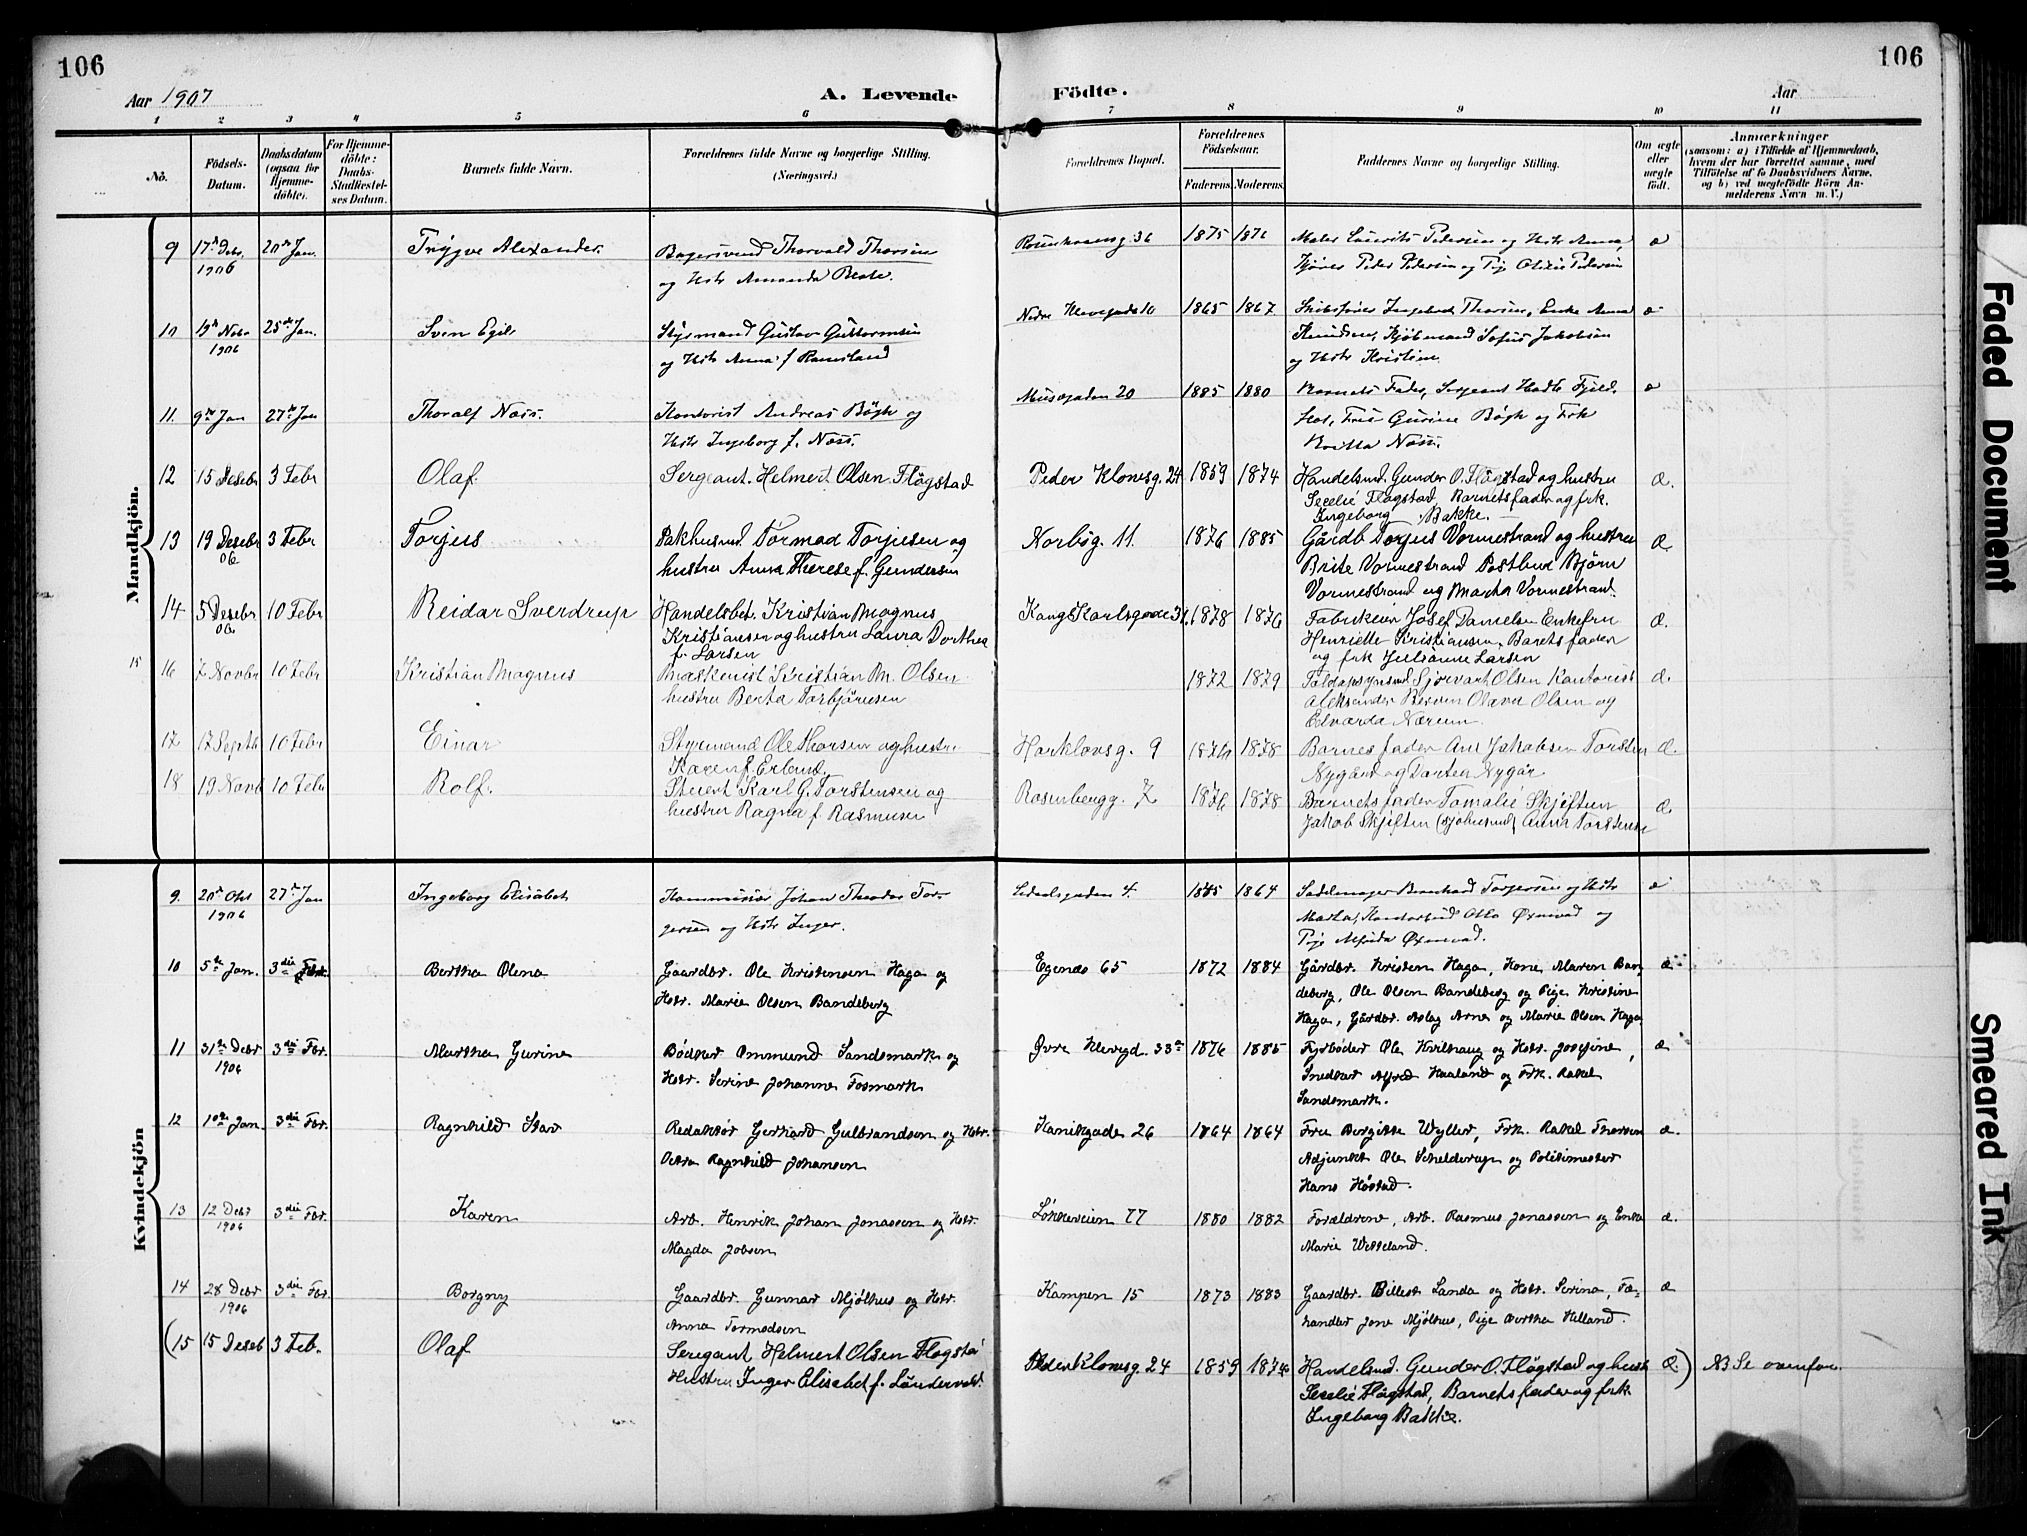 106
106
Aar 1907
A. Levende
Födte.
Aar
1 2 3 4 5 6 7 8 9 10 11
No.
Födsels-Datum.
Daabsdatum (ogsaa for Hjemme-döbte).
For Hjemme-döbte: Daabs-Stadfæstel-ses Datum.
Barnets fulde Navn.
Forældrenes fulde Navne og borgerlige Stilling. (Næringsvei.)
Forældrenes Bopæl.
Forældrenes Födselsaar.
Faderens. Moderens.
Faddernes Navne og borgerlige Stilling.
Om ægte eller uægte födt.
Anmærkninger
(saasom: a) i Tilfælde af Hjemmedaab, hvem der har forrettet samme, med Tilföielse af to Daabsvidners Navne, og b) ved uægtefödte Börn An-melderens Navn m. V.)
Mandkjön.
9 17de Debr. 20de Jan. Trygve Alexander. Bagersvend Thorvald Thorsen 1875 Maler Laurits Pedersen og Hstr Anna, æ
1906 og Hstr Amanda Peder Pedersen og Pige Pedersen
10 19de Nobr 25de Jan. Sven Egil Styrmand Gustav Guttormsen Nedre Klevegade 10 1865 1867 Skibsfører Ingebret Thorsen, Enke Anna æ
1906 og Hstr Anna f. Ramsland Knudsen, Kjøbmand Sofus Jakobsen
og Hstr Kristine.
11. 9de Jan 27de Jan Thoralf Næss. Kontorist Andreas Bögh og Musegaden 20 1885 1880 Barnets Fader, Sergeant æ
Hstr Ingeborg f. Næss. Fru Gurine Bögh og Frk
Næss.
12 15 Desebr 3 Febr Olaf. Sergeant. Helmert Olsen Flögstad Peder Klowsg. 24 1859 1874 Handelsmd. Gunder O. Flögstad og hustru æ.
Secelie Flögstad, Barnets fader og frk.
Ingeborg Bakke.
13 19 Desebr 3 Febr Torjus Pakhusmd Tormod Torjusen og Norbög. 11. 1876 1885 Gårdb Torjus Vormestrand og hustru æ.
06 hustru Anna Therese f. Gundersen Brite Vormestrand Postbud Björn
Vormestrand og Marta Vormestrand.
14 5 Desebr 10 Febr Reidar Sverdrup Handelsbet. Kristian Magnus KongKarlsgade 31. 1878 1876 Fabrikeier Josef Danielsen Enkefru æ.
06 Kristiansen og hustru Laura Dorthea Henriette Kristiansen, Barets fader
f. Larsen og frk Julianne Larsen
15
16 7 Novbr 10 Febr Kristian Magnus Maskenist Kristian M. Olsen 1872 1879 Olsen Kontorist æ.
hustru Berta Torbjörnsen Aleksander Olava Olsen og
Edvarda Nærum.
17 17 Septb 10 Febr Einar Styrmand Ole Thorsen og hustru Harklovsg. 9 1878 Barnes fader Ane Jakobsen Torsten æ.
Karen f. Erland. Nygård og Dortea Nygår
18 19 Novb 10 Febr Rolf. Stuert Karl G. Torstensen og Rosenbergg. 7 1876 1878 Barnets fader Tomalie Skjeften æ.
hustru Ragna f. Rasmusen Jakob Skjeften Anna Torstensen
Kvindekjön
9. 20de Okt 27de Jan Ingeborg Elisabet Kommissær Johan Theodor Tor- Ledaalsgaden 4. 1864 Sadelmager Bernhard Torgersen og Hstr æ
1906 gersen og Hstr Inger. Marta, Kontorbud Otto Øxnevad og
Pige Alfrida Øxnevad.
10 5te Jan. 3die Febr. Bertha Olena Gaardbr. Ole Kristensen Haga og Egenæs 65 1872 1884 Gårdbr. Kristen Haga, Kone Maren Ban- æ
Hstr. Marie Olsen Bandeberg deberg, Ole Olsen Bandeberg og Pige Kristine
Haga, Gårdbr. Aslag Arne og Marie Olsen Haga.
11 31te Debr 3die Feb. Martha Gurine Bødker Ommund Sandsmark og Øvre Klevegd. 33 1876 1885 Fyrbøder Ole Kvilhaug og Hstr. Josefine, æ
1906 Hstr. Serine Johanne Fosmark Snedker Alfred Haaland og Frk. Rakel
Sandsmark.
12 10de Jan. 3die Feb. Ragnhild Redaktør Gerhard Gulbrandsen og Hstr. Kanikgade 26 1864 1864 Fru Birgitte Wyller, Frk. Rakel Thorsen æ.
Petra Ragnhild Johansen Adjunkt Ole Schelderup og Politimester
Hans Høstad.
13 12 Debr 3die Feb. Karen Arb. Henrik Johan Jonassen og Hstr. Løkkeveien 77 1880 1882 Forældrene, Arb. Rasmus Jonassen og Enke æ.
1906 Magda Jobsen Marie Wetteland.
14 28 Debr 3die Feb. Borgny Gaardbr. Gunnar Mjölhus og Hstr. Kampen 15 1873 1883 Gaardbr. Billert Landa og Hstr. Serina, Fæ- æ
1906 Anna Tormodsen handler Jone Mjölhus, Pige Berthe Helland.
(15 15 Deseb 3 Feb. Olaf Seregant Helmert Olsen Flögstad Peder Klowsg. 24 1859 1874 Handelsmd. Gunder O. Flögstad og hust æ.) NB Se ovenfor.
Hustru Inger Elisabet f. Secelie Flögstad, Barnets fader og frk
Ingeborg Bakke.
Faded Document
Smeared Ink